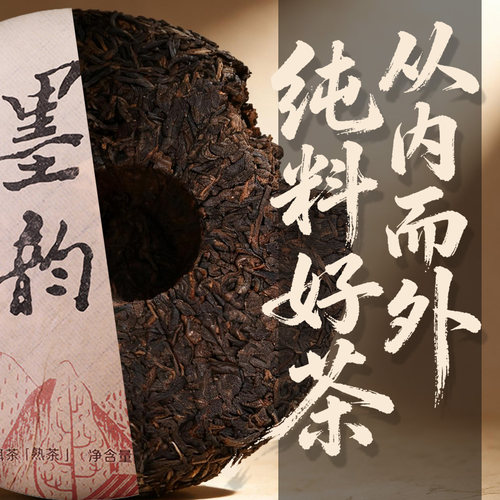 从内而外
纯料好茶
墨韵
洱茶「熟茶」 净含量